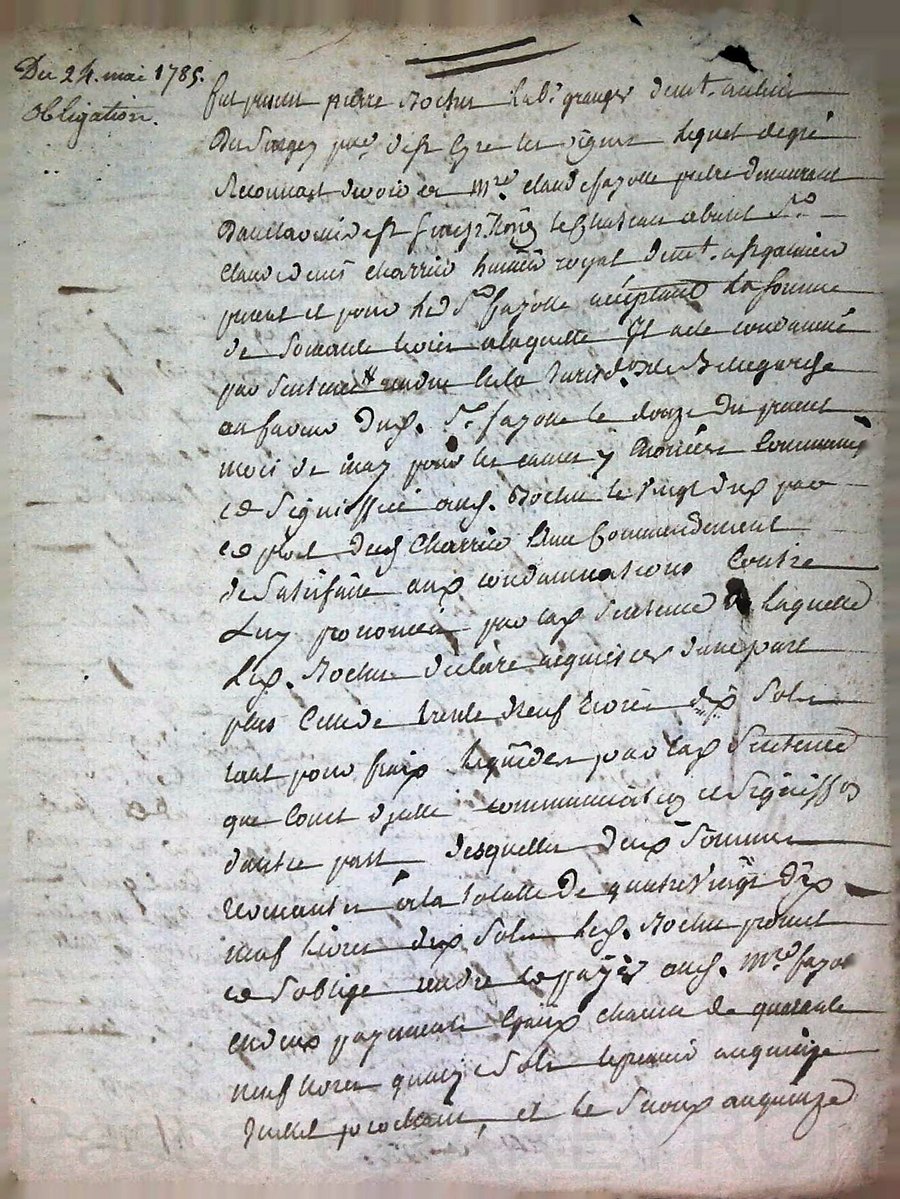 Du 24. mai 1785.
Obligation.
fut present pierre Rochu lab.r granger dem.t
lequel degré
Reconnoit devoir a M.re claude fazolle pretre demeurant
le chateau absent S.r
claude denis charrier huissier royal dem.t
present et pour led S.r fazolle acceptant la somme
de soixante livres alaquelle Il a ete condamné
par sentence rendue la Jurisd.on de Bellegarde
en faveur dud. S.r fazolle le douze du present
mois de may pour les causes y enoncées
et signiffiée aud. Rochu le vingt deux par
exploit dud Charrier avec Commendement
de satisfaire aux condamnations contre
Luy prononcées par lad sentence a Laquelle
Led. Rochu declare acquiescer d'une part
plus celle de trente neuf livres dix sols
tant pour fraix liquidés par lad sentence
que
d'autre part desquelles deux sommes
revenantes a la totalle de quatre vingt dix
neuf livres dix sols led. Rochu promet
et s'oblige rendre et payer aud. M.re fazolle
en deux payements egaux chacun de quarante
neuf livres quinze sols le premier au quinze
Juillet prochain, et le second au quinze